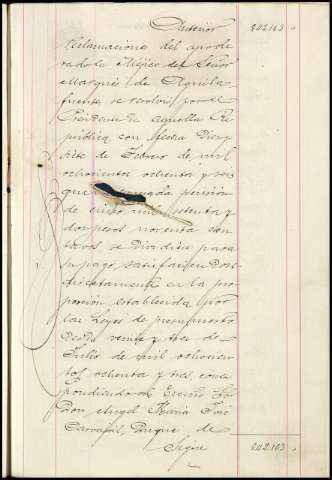 Anterior 242.103
Reclamaciones del apode
rado en Méjico del Señor
Marqués de Aguila-
fuente, se resolvió por el
Presidente de aquella Re
pública con fecha Diez y
siete de Febrero de mil
ochocientos ochenta y tres
que la pensión
de cinco mil setenta y
dos pesos noventa cen
tavos se dividiera para
su pago, satisfaciendose
directamente en la pro
porción establecida por
las Leyes de presupuesto
desde veinte y tres de
Julio de mil ochocien
tos ochenta y tres, corres
pondiendo al Excmo Sor
Don Angel Maria José
Carvajal, Duque de
Sigue 242.103